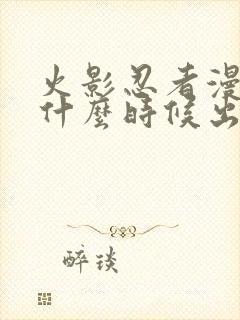 火影忍者漫
什麼時候出
醉琰